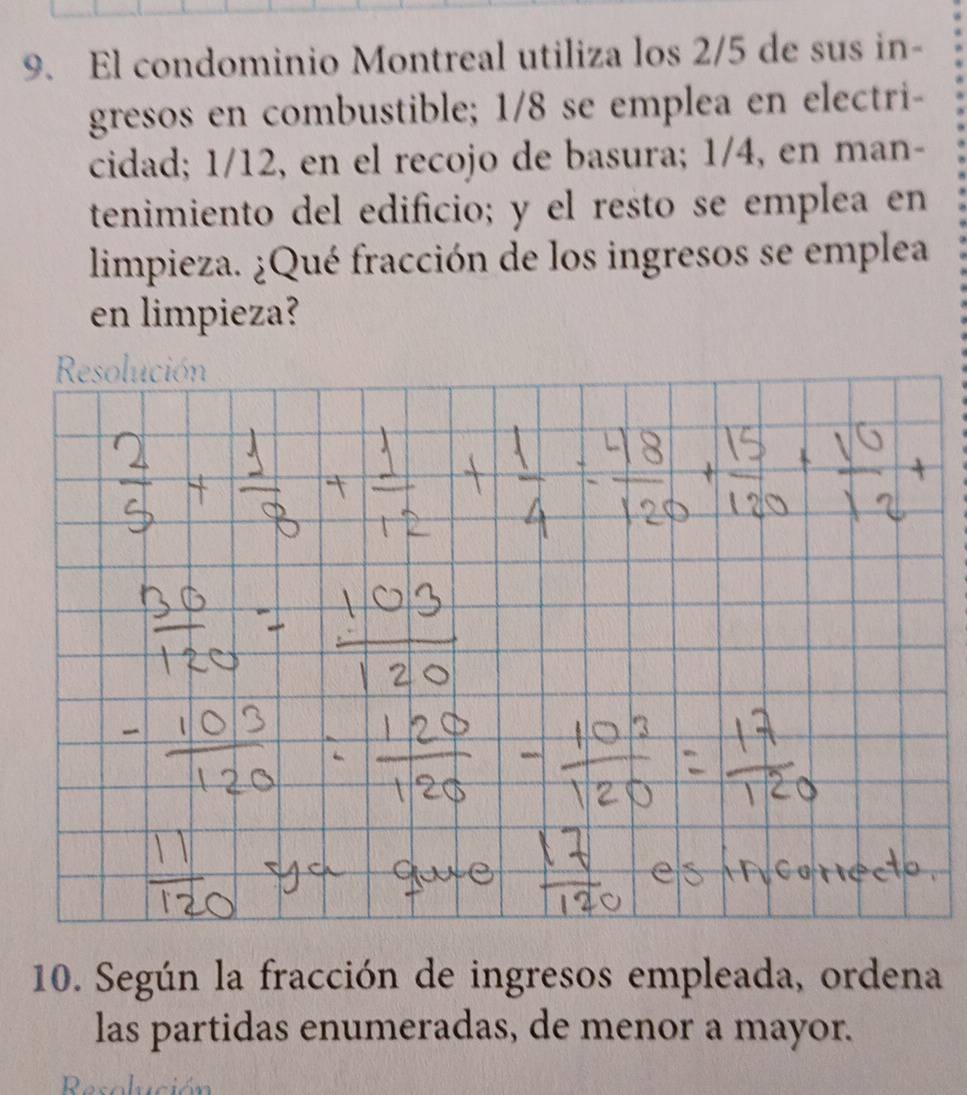 9. El condominio Montreal utiliza los 2/5 de sus in-
gresos en combustible; 1/8 se emplea en electri-
cidad; 1/12, en el recojo de basura; 1/4, en man-
tenimiento del edificio; y el resto se emplea en
limpieza. ¿Qué fracción de los ingresos se emplea
en limpieza?
Resolución
2/5 + 1/8 + 1/12 + 1/4 = 48/120 + 15/120 + 10/12 +
30/120 = 103/120
- 103/120 = 120/120 - 103/120 = 17/120
11/120 ya que 17/120 es incorrecto.
10. Según la fracción de ingresos empleada, ordena
las partidas enumeradas, de menor a mayor.
Resolución